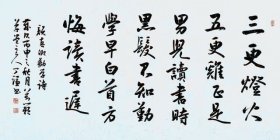 三更燈火
五更雞正是
男兒讀書時
黑髮不知勤
學早白首方
悔讀書遲
顏真卿勸學詩